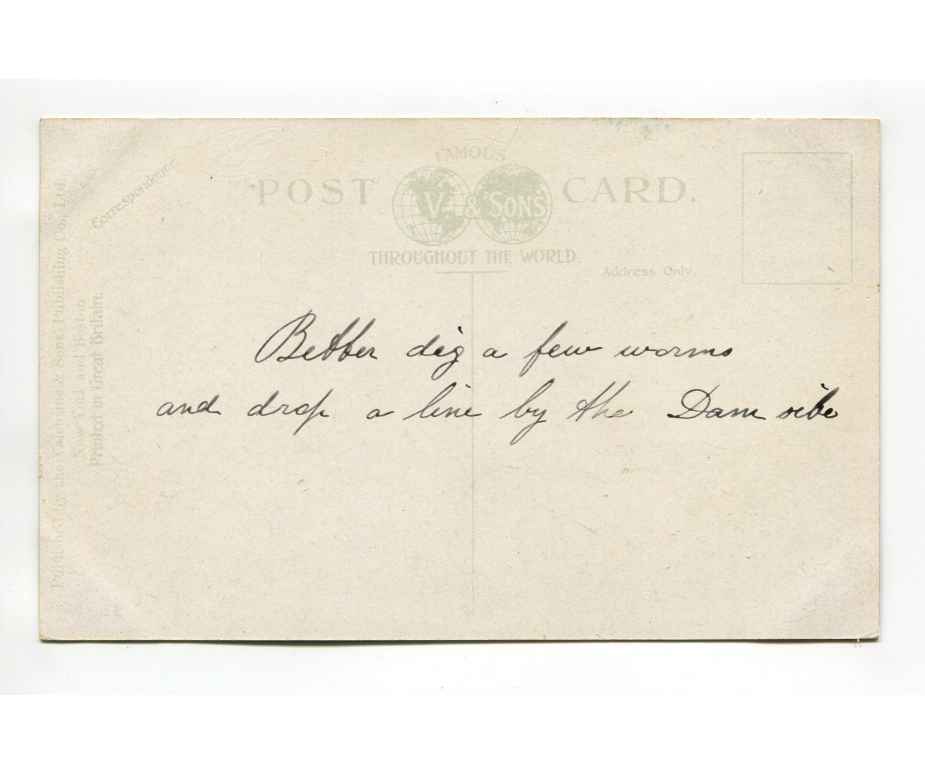 FAMOUS
POST V. & SONS CARD.
THROUGHOUT THE WORLD.
Address Only.
Correspondence.
Published by the Valentine & Sons Publishing Co., Ltd.
New York and Boston
Printed in Great Britain.
Better dig a few worms
and drop a line by the Dam